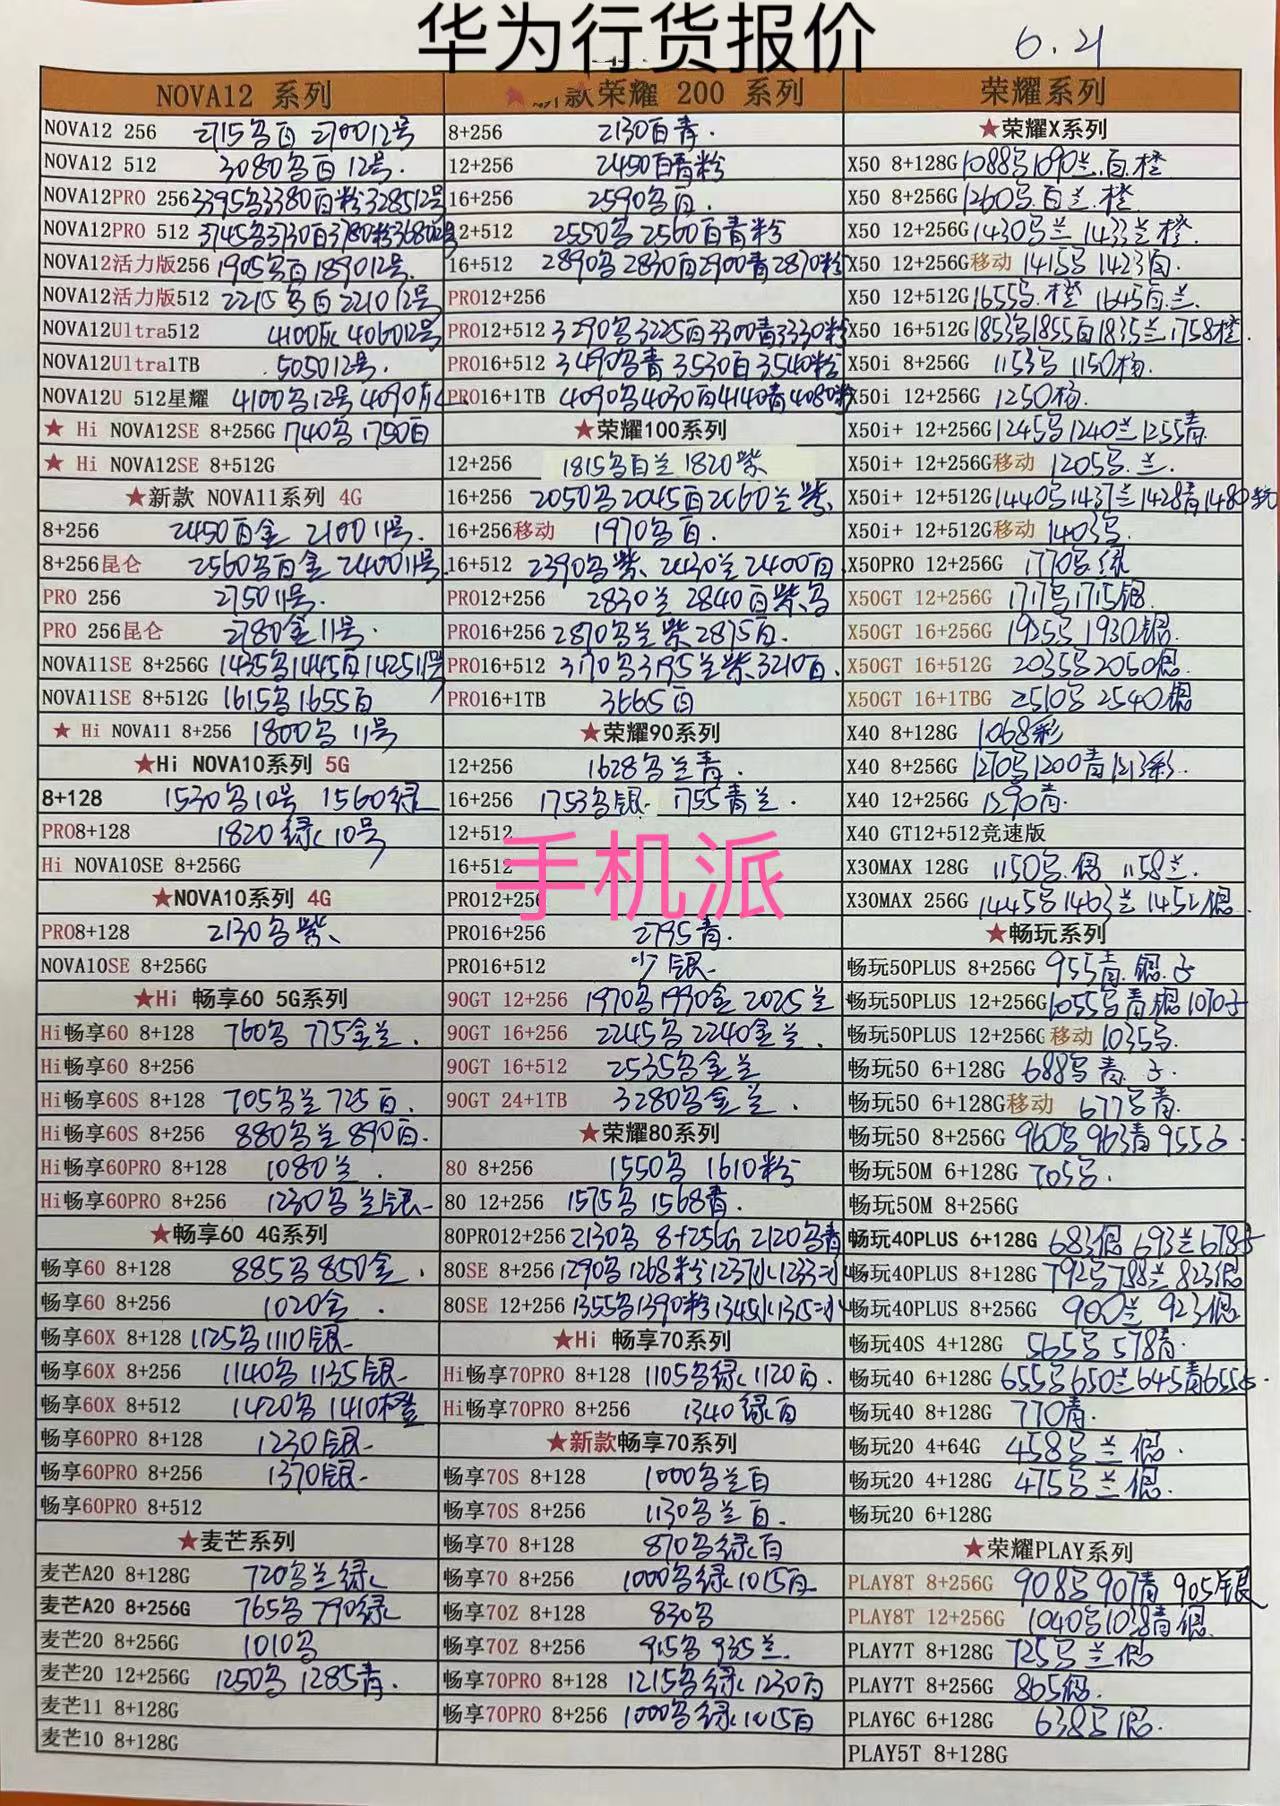 华为行货报价
6.21
NOVA12 系列
NOVA12 256 2715乌百 2700 12号
NOVA12 512 3080乌百 12号.
NOVA12PRO 256 3395乌3380百粉3285 12号
NOVA12PRO 512 3745乌3730百3780粉3680
NOVA12活力版256 1905乌百1890 12号.
NOVA12活力版512 2215乌百2210 12号
NOVA12Ultra512 4100 4060 12号
NOVA12Ultra1TB 5050 12号.
NOVA12U 512星耀 4100乌12号4090
★ Hi NOVA12SE 8+256G 1740乌1750百
★ Hi NOVA12SE 8+512G
★新款 NOVA11系列 4G
8+256 2450百金 2100 11号.
8+256昆仑 2560乌百金 2400 11号
PRO 256 2750 11号.
PRO 256昆仑 2780金11号.
NOVA11SE 8+256G 1435乌1445百1425 11号
NOVA11SE 8+512G 1615乌1655百
★ Hi NOVA11 8+256 1800乌 11号
★Hi NOVA10系列 5G
8+128 1530乌10号 1560绿
PRO8+128 1820绿10号
Hi NOVA10SE 8+256G
★NOVA10系列 4G
PRO8+128 2130乌紫
NOVA10SE 8+256G
★Hi 畅享60 5G系列
Hi畅享60 8+128 760乌 775金兰.
Hi畅享60 8+256
Hi畅享60S 8+128 705乌兰725百.
Hi畅享60S 8+256 880乌兰890百.
Hi畅享60PRO 8+128 1080兰.
Hi畅享60PRO 8+256 1230乌兰银
★畅享60 4G系列
畅享60 8+128 885乌850金.
畅享60 8+256 1020金.
畅享60X 8+128 1125乌1110银
畅享60X 8+256 1140乌 1135银
畅享60X 8+512 1420乌 1410橙
畅享60PRO 8+128 1230银
畅享60PRO 8+256 1370银
畅享60PRO 8+512
★麦芒系列
麦芒A20 8+128G 720乌兰绿
麦芒A20 8+256G 765乌790绿
麦芒20 8+256G 1010乌
麦芒20 12+256G 1250乌 1285青.
麦芒11 8+128G
麦芒10 8+128G
款荣耀 200 系列
8+256 2130百青.
12+256 2450百青粉
16+256 2590乌百.
2+512 2550乌2560百青粉
16+512 2890乌2830百2900青2870粉
PRO12+256
PRO12+512 3290乌3225百3300青3330粉
PRO16+512 3490乌青3530百3540粉
PRO16+1TB 4090乌4030百4140青4080粉
★荣耀100系列
12+256 1815乌百兰 1820紫
16+256 2050乌2045百2060兰紫
16+256移动 1970乌百.
16+512 2390乌紫 2430兰2400百
PRO12+256 2830兰2840百紫乌
PRO16+256 2870乌兰紫2875百.
PRO16+512 3170乌3195兰紫3210百.
PRO16+1TB 3665百
★荣耀90系列
12+256 1628乌兰青.
16+256 1753乌银 1755青兰.
12+512
16+512
手机派
PRO12+256
PRO16+256 2795青.
PRO16+512 少银
90GT 12+256 1970乌1990金2025兰
90GT 16+256 2245乌2240金兰.
90GT 16+512 2535乌金兰
90GT 24+1TB 3280乌金兰.
★荣耀80系列
80 8+256 1550乌 1610粉
80 12+256 1575乌 1568青.
80PRO12+256 2130乌 8+256G 2120乌青
80SE 8+256 1290乌1268粉1237 1233
80SE 12+256 1355乌1390粉1345 1315
★Hi 畅享70系列
Hi畅享70PRO 8+128 1105乌绿1120百.
Hi畅享70PRO 8+256 1340绿百
★新款畅享70系列
畅享70S 8+128 1000乌兰百
畅享70S 8+256 1130乌兰百.
畅享70 8+128 870乌绿百
畅享70 8+256 1000乌绿1015百
畅享70Z 8+128 830乌
畅享70Z 8+256 915乌 935兰.
畅享70PRO 8+128 1215乌绿1230百
畅享70PRO 8+256 1000乌绿1015百
荣耀系列
★荣耀X系列
X50 8+128G 1088乌1090兰.百.橙
X50 8+256G 1260乌.百兰.橙
X50 12+256G 1430乌兰 1433兰橙.
X50 12+256G移动 1415乌1423百.
X50 12+512G 1655乌.橙 1645百.兰.
X50 16+512G 1853乌1855百1835兰1758橙.
X50i 8+256G 1153乌 1150杨.
X50i 12+256G 1250杨.
X50i+ 12+256G 1245乌1240兰1255青.
X50i+ 12+256G移动 1205乌.兰.
X50i+ 12+512G 1440乌1437兰1428青1480
X50i+ 12+512G移动 1403乌.
X50PRO 12+256G 1770乌绿
X50GT 12+256G 1717乌1715银.
X50GT 16+256G 1925乌1930银.
X50GT 16+512G 2035乌2050银.
X50GT 16+1TBG 2510乌2540银
X40 8+128G 1068彩
X40 8+256G 1270乌1200青1213彩.
X40 12+256G 1290青.
X40 GT12+512竞速版
X30MAX 128G 1150乌.银 1158兰.
X30MAX 256G 1445乌1463兰1452银.
★畅玩系列
畅玩50PLUS 8+256G 955青.银.子
畅玩50PLUS 12+256G 1055乌青银1070子
畅玩50PLUS 12+256G 移动 1035乌.
畅玩50 6+128G 688乌青.子.
畅玩50 6+128G移动 677乌青.
畅玩50 8+256G 960乌963青955子.
畅玩50M 6+128G 705乌.
畅玩50M 8+256G
畅玩40PLUS 6+128G 683银693兰678子
畅玩40PLUS 8+128G 792乌788兰823银
畅玩40PLUS 8+256G 900兰 923银
畅玩40S 4+128G 565乌578青.
畅玩40 6+128G 655乌650兰645青655
畅玩40 8+128G 770青.
畅玩20 4+64G 458乌兰银.
畅玩20 4+128G 475乌兰银.
畅玩20 6+128G
★荣耀PLAY系列
PLAY8T 8+256G 908乌907青 905银
PLAY8T 12+256G 1040乌1038青银.
PLAY7T 8+128G 725乌兰银
PLAY7T 8+256G 865银.
PLAY6C 6+128G 638乌银.
PLAY5T 8+128G